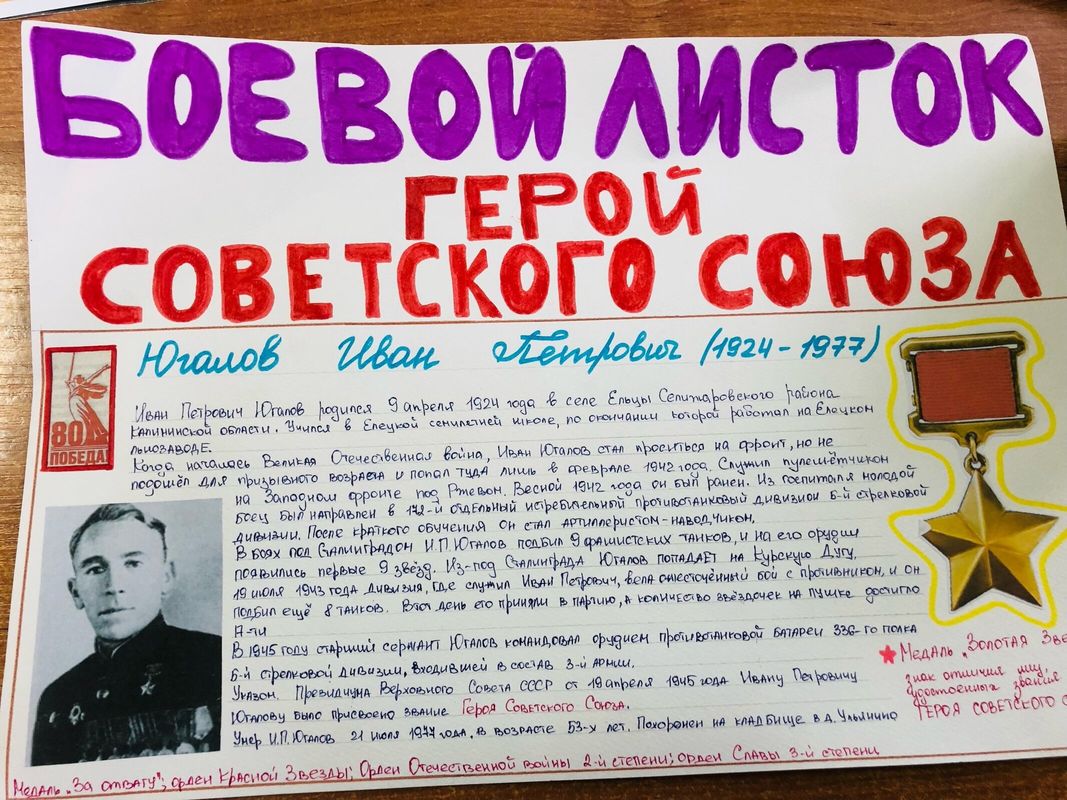 БОЕВОЙ ЛИСТОК
ГЕРОЙ
СОВЕТСКОГО СОЮЗА
Югалов Иван Петрович (1924-1977)
80
ПОБЕДА!
Иван Петрович Югалов родился 9 апреля 1924 года в селе Ельцы Селижаровского района
Калининской области. Учился в Елецкой семилетней школе, по окончании которой работал на Елецком
льнозаводе.
Когда началась Великая Отечественная война, Иван Югалов стал проситься на фронт, но не
подошёл для призывного возраста и попал туда лишь в феврале 1942 года. Служил пулемётчиком
на Западном фронте под Ржевом. Весной 1942 года он был ранен. Из госпиталя молодой
боец был направлен в 172-й отдельный истребительный противотанковый дивизион 6-й стрелковой
дивизии. После краткого обучения он стал артиллеристом-наводчиком.
В боях под Сталинградом И.П.Югалов подбил 9 фашистских танков, и на его орудии
появились первые 9 звёзд. Из-под Сталинграда Югалов попадает на Курскую Дугу.
19 июля 1943 года дивизия, где служил Иван Петрович, вела ожесточённый бой с противником, и он
подбил ещё 8 танков. В тот день его приняли в партию, а количество звёздочек на пушке достигло
17-ти
В 1945 году старший сержант Югалов командовал орудием противотанковой батареи 336-го полка
6-й стрелковой дивизии, входившей в состав 3-й армии.
Указом. Президиума Верховного Совета СССР от 19 апреля 1945 года Ивану Петровичу
Югалову было присвоено звание Героя Советского Союза.
Умер И.П.Югалов 21 июля 1977 года, в возрасте 53-х лет. Похоронен на кладбище в д. Ульянино
Медаль „Золотая Зве
знак отличия лиц,
удостоенных звания
ГЕРОЯ СОВЕТСКОГО С
Медаль „За отвагу"; орден Красной Звезды; Орден Отечественной войны 2-й степени; орден Славы 3-й степени